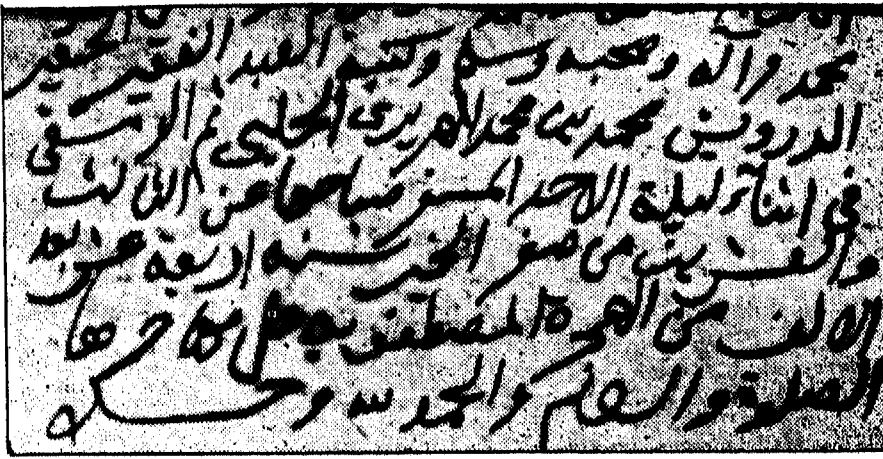 محمد وآله وصحبه وسلم وكتبه العبد الفقير الحقير
الدرويش محمد بن محمد الحلبي ثم الدمشقي
في اثناء ليلة الاحد المسفر صباحها عن الثالث
والعشرين من صفر الخير سنة اربعة عشر بعد
الالف من الهجرة المصطفوية على من
الصلوة والسلام والحمد لله وحده